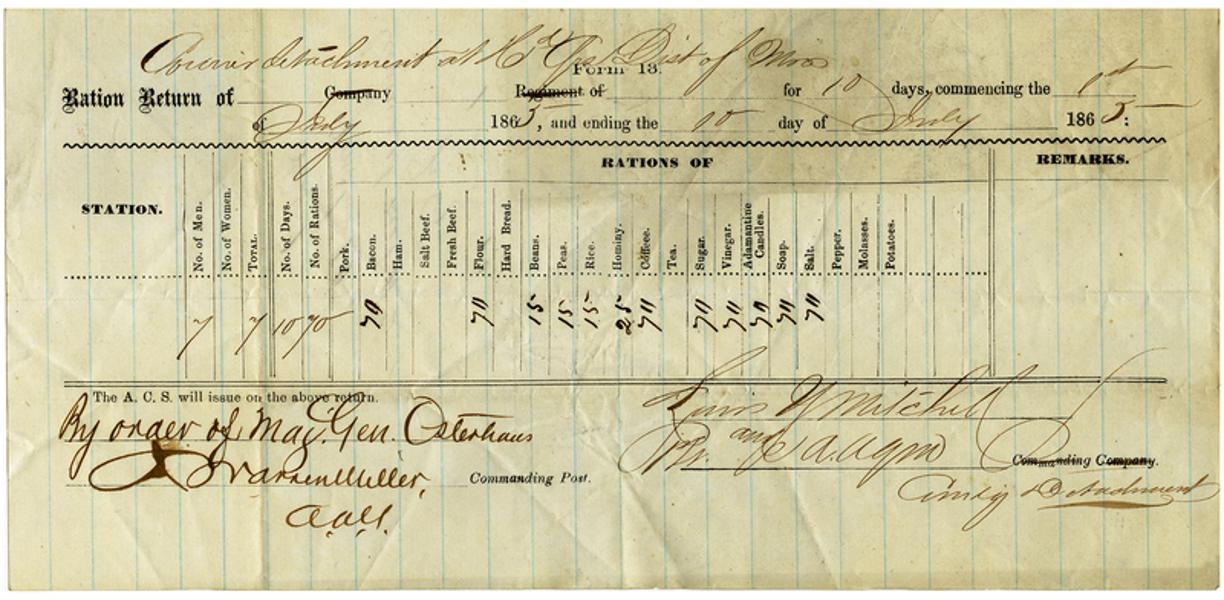 Courier detachment at Hd Qrs Dist of Miss
Form 13.
Ration Return of Company Regiment of for 10 days, commencing the 1st
of July 1865, and ending the 10 day of July 1865:
RATIONS OF
REMARKS.
STATION.
No. of Men. No. of Women. TOTAL. No. of Days. No. of Rations. Pork. Bacon. Ham. Salt Beef. Fresh Beef. Flour. Hard Bread. Beans. Peas. Rice. Hominy. Coffee. Tea. Sugar. Vinegar. Adamantine Candles. Soap. Salt. Pepper. Molasses. Potatoes.
7 7 10 70 70 70 15 15 15 25 70 70 70 70 70 70
The A. C. S. will issue on the above return.
By order of Maj. Gen. Osterhaus
Warren Miller,
Commanding Post.
Mitchell
and
Commanding Company.
Detachment